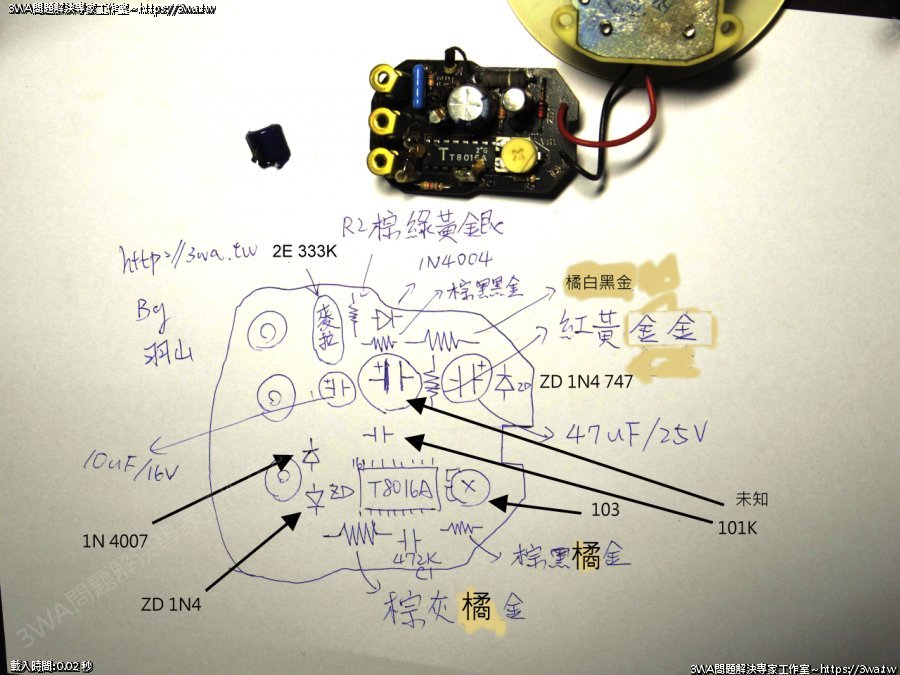 3WA問題解決專家工作室~https://3wa.tw
2*G
T T8016A
R2棕綠黃銀
http://3wa.tw
2E 333K
1N4004
By
羽山
麥拉
棕黑黑金
橘白黑金
紅黃金金
ZD
ZD 1N4 747
10uF/16V
47uF/25V
未知
101K
103
16
T8016A
ZD
1N 4007
ZD 1N4
472K
C1
棕黑橘金
棕灰橘金
3WA問題解決專家
載入時間:0.02 秒
3WA問題解決專家工作室~https://3wa.tw